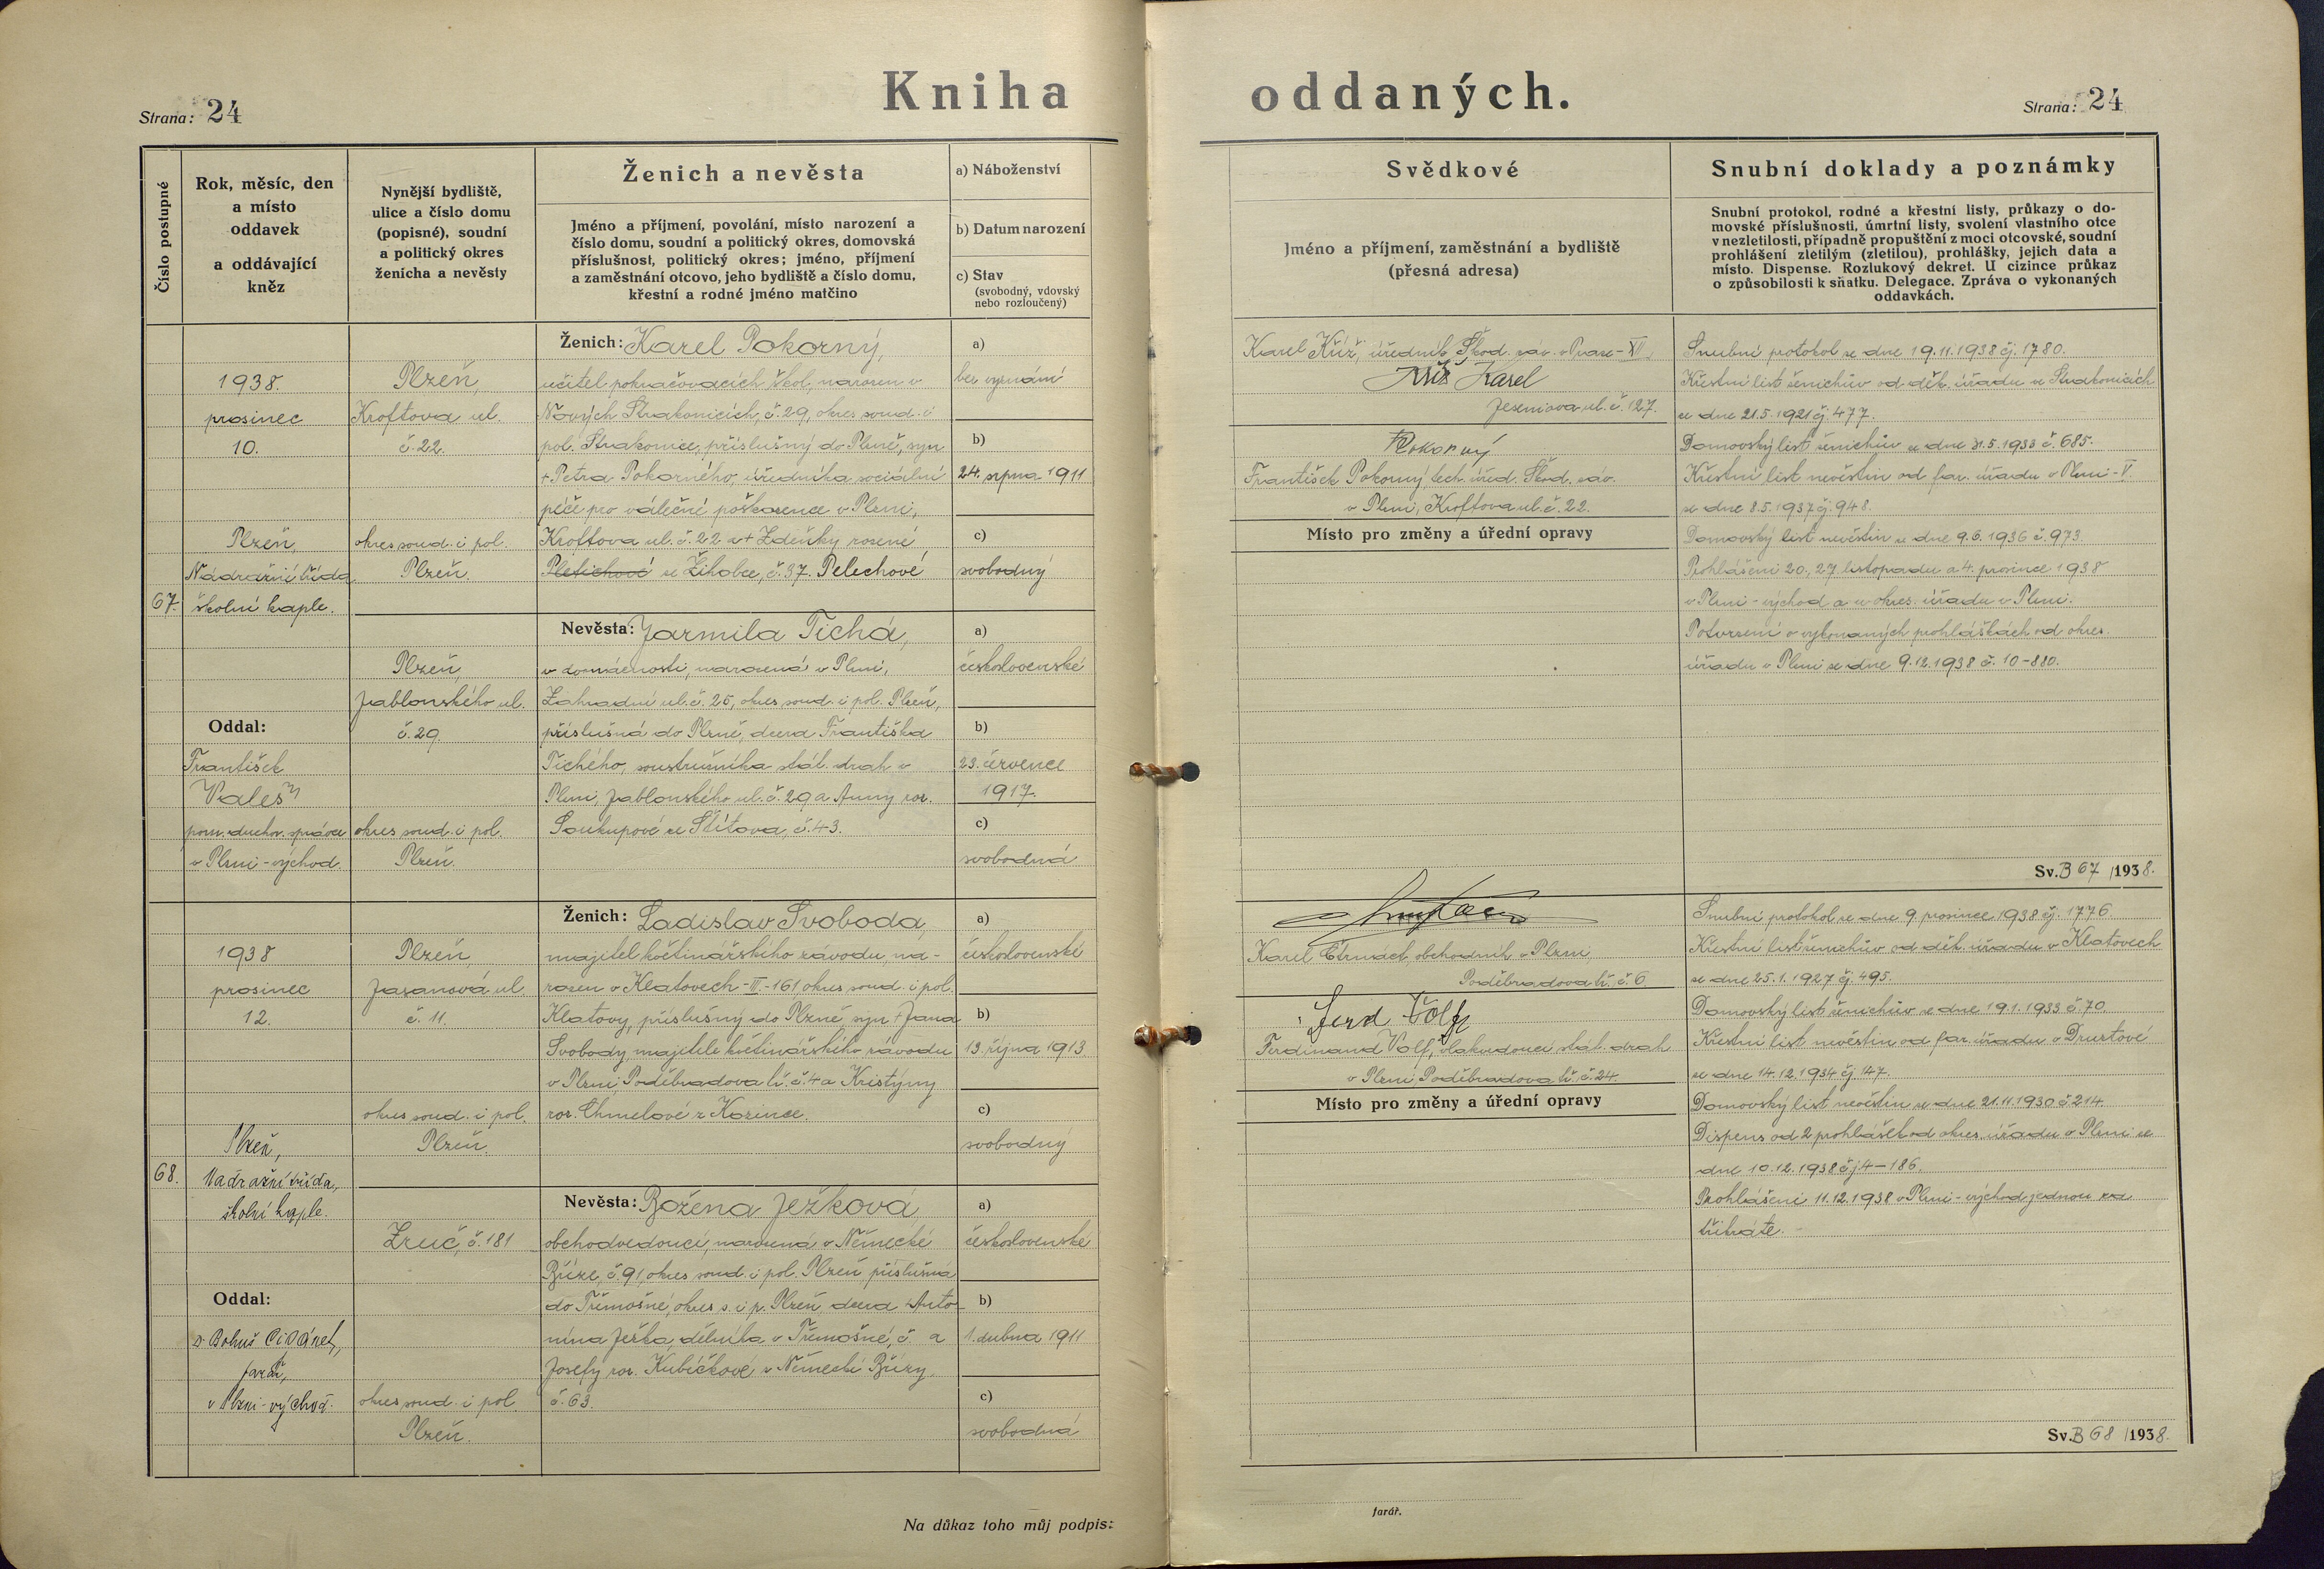 Strana: 24
Kniha oddaných.
Strana: 24
Číslo postupné
Rok, měsíc, den
a místo
oddavek
a oddávající
kněz
Nynější bydliště,
ulice a číslo domu
(popisné), soudní
a politický okres
ženicha a nevěsty
Ženich a nevěsta
Jméno a příjmení, povolání, místo narození a
číslo domu, soudní a politický okres, domovská
příslušnost, politický okres; jméno, příjmení
a zaměstnání otcovo, jeho bydliště a číslo domu,
křestní a rodné jméno matčino
a) Náboženství
b) Datum narození
c) Stav
(svobodný, vdovský
nebo rozloučený)
Svědkové
Jméno a příjmení, zaměstnání a bydliště
(přesná adresa)
Snubní doklady a poznámky
Snubní protokol, rodné a křestní listy, průkazy o do-
movské příslušnosti, úmrtní listy, svolení vlastního otce
v nezletilosti, případně propuštění z moci otcovské, soudní
prohlášení zletilým (zletilou), prohlášky, jejich data a
místo. Dispense. Rozlukový dekret. U cizince průkaz
o způsobilosti k sňatku. Delegace. Zpráva o vykonaných
oddavkách.
67.
1938.
prosinec
10.
Plzeň,
Nádražní třída
školní kaple.
Oddal:
František
Valeš
pom. duchov. správce
v Plzni-východ.
Plzeň,
Kroftova ul.
č. 22.
okres soud. i pol.
Plzeň.
Plzeň,
Jablonského ul.
č. 29.
okres soud. i pol.
Plzeň.
Ženich: Karel Pokorný,
učitel pokračovacích škol, narozen v
Nových Strakonicích, č. 29, okres soud. i
pol. Strakonice, příslušný do Plzně, syn
+ Petra Pokorného, úředníka sociální
péče pro válečné poškozence v Plzni,
Kroftova ul. č. 22 a + Zdeňky rozené
Pletichové ze Žihobce, č. 37. Pelechové
a)
bez vyznání
b)
24. srpna 1911
c)
svobodný
Nevěsta: Jarmila Tichá,
v domácnosti, narozená v Plzni,
Zahradní ul. č. 25, okres soud. i pol. Plzeň,
příslušná do Plzně, dcera Františka
Tichého, soustružníka stát. drah v
Plzni, Jablonského ul. č. 29 a Anny roz.
Soukupové ze Štítova, č. 43.
a)
československé
b)
23. července
1917.
c)
svobodná
Karel Kříž, úředník Škod. záv. v Praze-XI.
Kříž Karel
Jeseniova ul. č. 127.
Pokorný
František Pokorný, tech. úřed. Škod. záv.
v Plzni, Kroftova ul. č. 22.
Místo pro změny a úřední opravy
Snubní protokol ze dne 19. 11. 1938 čj. 1780.
Křestní list ženichův od děk. úřadu ve Strakonicích
ze dne 21. 5. 1921 čj. 477.
Domovský list ženichův ze dne 31. 5. 1933 č. 685.
Křestní list nevěstin od far. úřadu v Plzni-V.
ze dne 8. 5. 1937 čj. 948.
Domovský list nevěstin ze dne 9. 6. 1936 č. 973.
Prohlášení 20., 27. listopadu a 4. prosince 1938
v Plzni-východ a u okres. úřadu v Plzni.
Potvrzení o vykonaných prohláškách od okres.
úřadu v Plzni ze dne 9. 12. 1938 č. 10-880.
Sv. B 67 /1938.
68.
1938
prosinec
12.
Plzeň,
Nádražní třída,
školní kaple.
Oddal:
Bohuš Cikánek,
farář,
v Plzni-východ.
Plzeň,
Jasanová ul.
č. 11.
okres soud. i pol.
Plzeň.
Zruč, č. 181
okres soud. i pol.
Plzeň.
Ženich: Ladislav Svoboda
majitel květinářského závodu, na-
rozen v Klatovech-III.-161 okres soud. i pol.
Klatovy, příslušný do Plzně syn + Jana
Svobody, majitele květinářského závodu
v Plzni, Poděbradova tř. č. 4 a Kristýny
roz. Chmelové z Kozince.
a)
československé
b)
13. října 1913
c)
svobodný
Nevěsta: Božena Ježková
obchodvedoucí, narozená v Německé
Bříze, č. 91, okres soud. i pol. Plzeň příslušná
do Třemošné, okres s. i p. Plzeň, dcera Anto-
nína Ježka, dělníka v Třemošné, č. a
Josefy roz. Kubíčkové z Německé Břízy,
č. 63.
a)
československé
b)
1. dubna 1911
c)
svobodná
Karel Ctrnáct, obchodník v Plzni
Poděbradova tř. č. 6.
Ferd. Volf
Ferdinand Volf, vlakvedoucí stát. drah
v Plzni, Poděbradova tř. č. 24.
Místo pro změny a úřední opravy
Snubní protokol ze dne 9. prosince 1938 čj. 1776.
Křestní list ženichův od děk. úřadu v Klatovech
ze dne 25. 1. 1927 čj. 495.
Domovský list ženichův ze dne 19. 1. 1933 č. 70.
Křestní list nevěstin od far. úřadu v Druztové
ze dne 14. 12. 1934 čj. 147.
Domovský list nevěstin ze dne 21. 11. 1930 č. 214.
Dispens od 2 prohlášek od okres. úřadu v Plzni ze
dne 10. 12. 1938 čj 4-186.
Prohlášeni 11. 12. 1938 v Plzni-východ jednou za
třikráte.
Sv. B 68 /1938.
Na důkaz toho můj podpis:
farář.